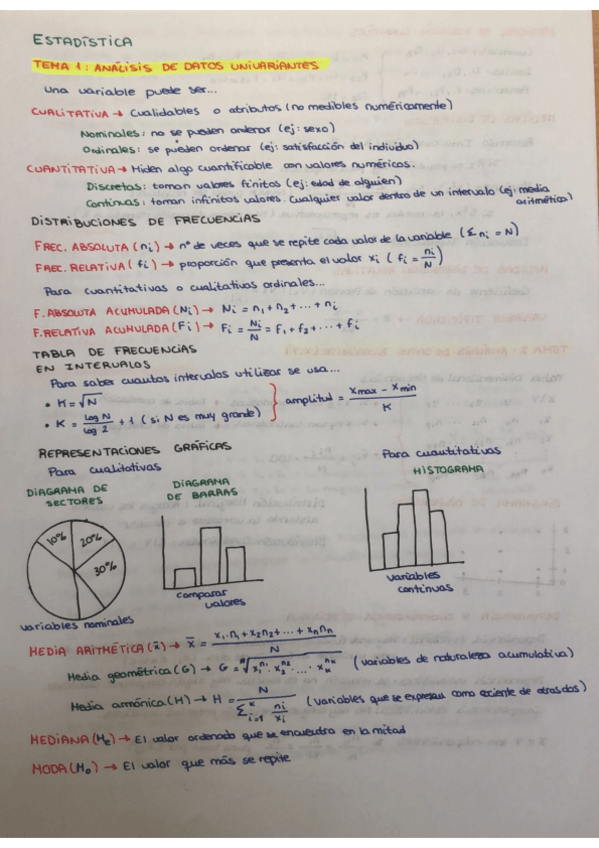 ESTADÍSTICA
TEMA 1: ANÁLISIS DE DATOS UNIVARIANTES
Una variable puede ser...
CUALITATIVA → Cualidades o atributos (no medibles numéricamente)
Nominales: no se pueden ordenar (ej: sexo)
Ordinales: se pueden ordenar (ej: satisfacción del individuo)
CUANTITATIVA → Miden algo cuantificable con valores numéricos.
Discretas: toman valores finitos (ej: edad de alguien)
Continuas: toman infinitos valores. Cualquier valor dentro de un intervalo (ej: media
aritmética)
DISTRIBUCIONES DE FRECUENCIAS
FREC. ABSOLUTA (ni) → nº de veces que se repite cada valor de la variable (Σ ni = N)
FREC. RELATIVA (fi) → proporción que presenta el valor xi (fi = ni/N)
Para cuantitativas o cualitativas ordinales...
F. ABSOLUTA ACUMULADA (Ni) → Ni = n1 + n2 + ... + ni
F. RELATIVA ACUMULADA (Fi) → Fi = Ni/N = f1 + f2 + ... + fi
TABLA DE FRECUENCIAS
EN INTERVALOS
Para saber cuantos intervalos utilizar se usa...
• K = √N
• K = log N/log 2 + 1 (si N es muy grande)
amplitud = xmax - xmin/K
REPRESENTACIONES GRÁFICAS
Para cualitativas
Para cuantitativas
DIAGRAMA DE
SECTORES
DIAGRAMA
DE BARRAS
HISTOGRAMA
10% 20%
30%
variables nominales
comparar
valores
variables
continuas
MEDIA ARITMÉTICA (x̄) → x̄ = x1·n1 + x2n2 + ... + xnnn/N
Media geométrica (G) → G = ᴺ√x1^n1 · x2^n2 · ... · xk^nk (variables de naturaleza acumulativa)
Media armónica (H) → H = N/Σ(i=1, k) ni/xi (variables que se expresan como cociente de otras dos)
MEDIANA (Me) → El valor ordenado que se encuentra en la mitad
MODA (Mo) → El valor que más se repite